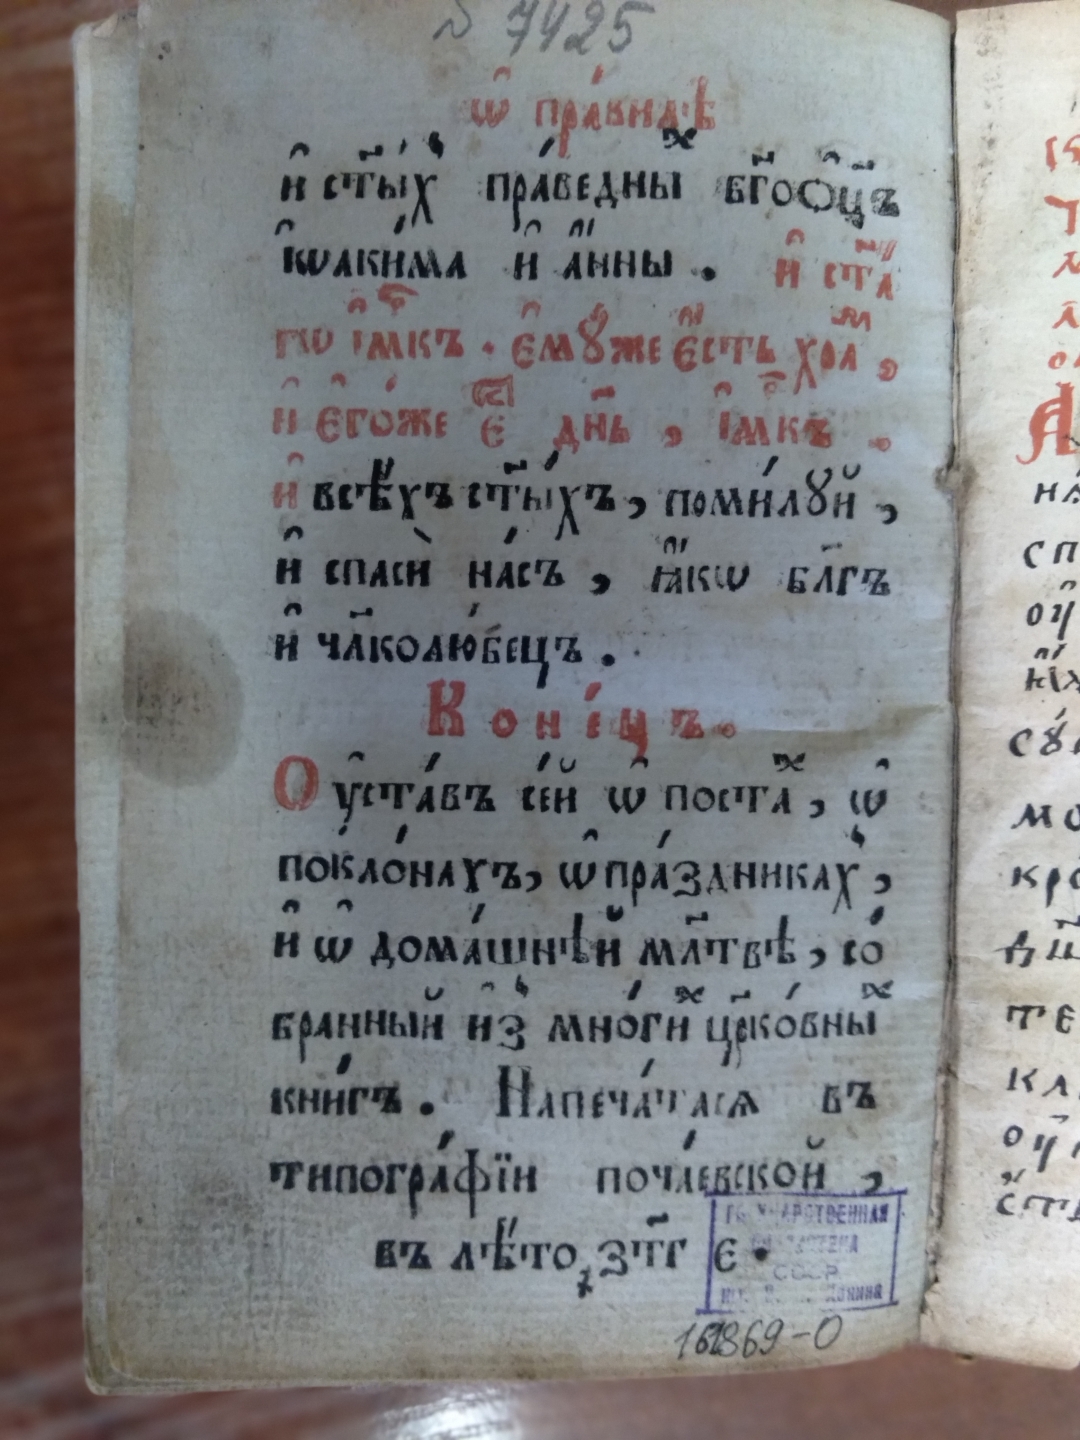 № 7425
ѿ пра́вилѣ
и҆ ст҃ы́хъ пра́ведныⷯ бг҃оо҆ц҃ъ
і҆ѡаки́ма и҆ а҆́нны . и҆ ст҃а́
гѡ і҆м҃къ . є҆мꙋ́же є҆́сть хⷬ҇а́мъ ,
и҆ є҆го́же є҆́ст дн҃ь , і҆м҃къ .
и҆ всѣ́хъ ст҃ы́хъ , поми́лꙋй ,
и҆ спасѝ на́съ , ꙗ҆́кѡ бл҃гъ
и҆ чл҃колю́бецъ .
Коне́цъ.
Оу҆ста́въ се́й ѡ҆ постаⷯ , ѡ҆
покло́нахъ, ѡ҆ пра́здникахъ ,
и҆ ѡ҆ дома́шнѣй мл҃твѣ , со́
бранный и҆з мно́гиⷯ цр҃ко́вныⷯ
кни́гъ . Напеча́тася въ
типогра́фїи поча́евской ,
въ лѣ́то ҂зт҃г є .
ГОСУДАРСТВЕННАЯ
БИБЛИОТЕКА
СССР
им. В. И. Ленина
161869-О